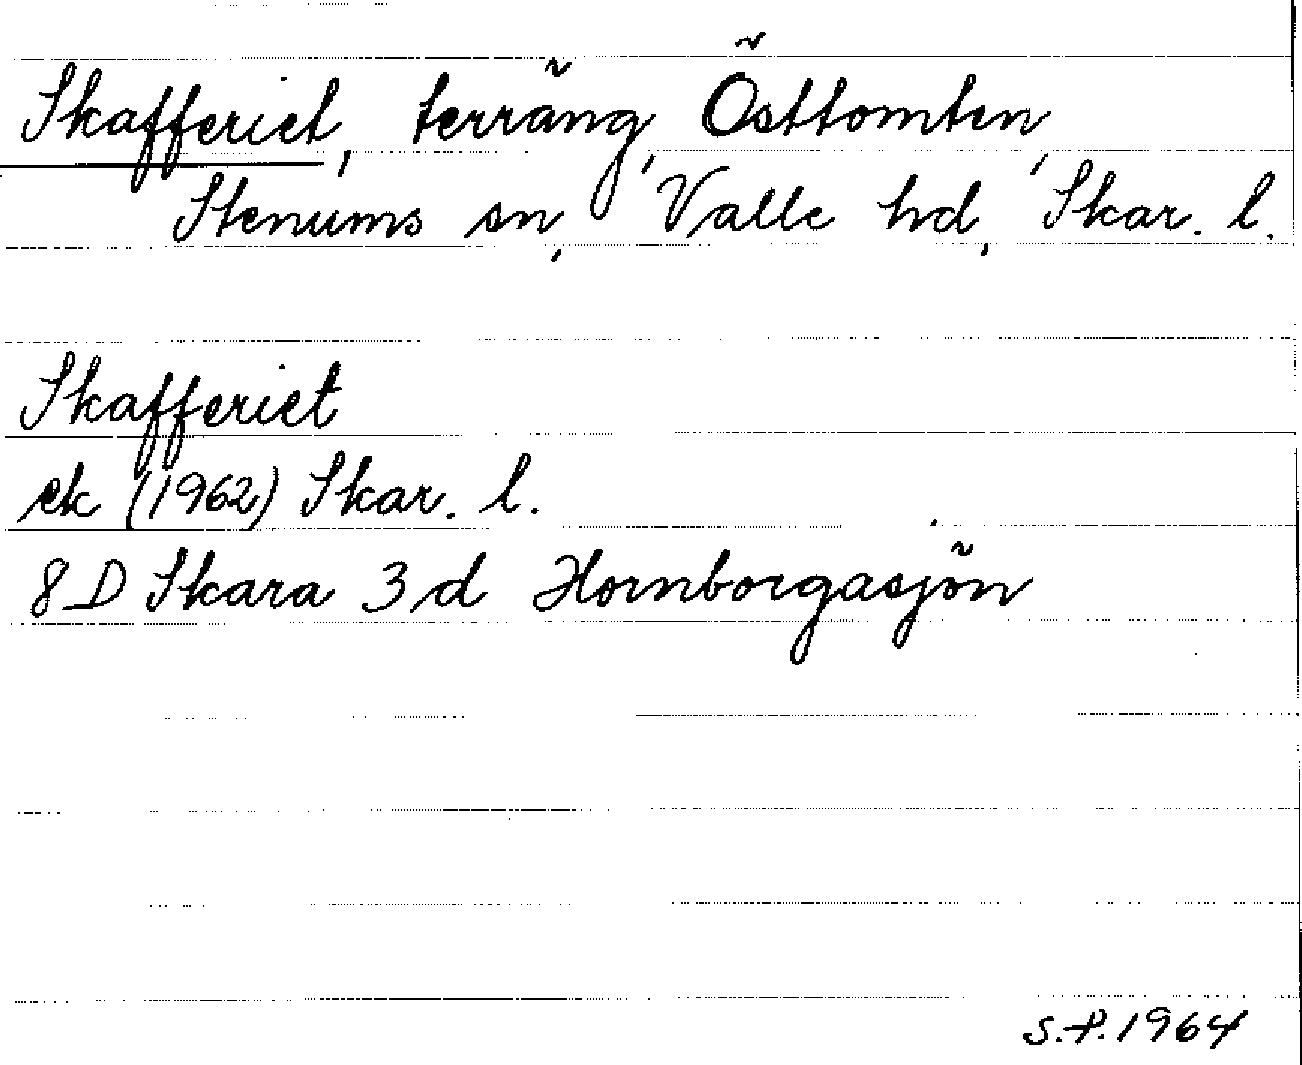 Skafferiet, terräng, Östtomten,
Stenums sn, Valle hd, Skar. l.
Skafferiet
ek (1962) Skar. l.
8 D Skara 3 d Hornborgasjön
S.P. 1964